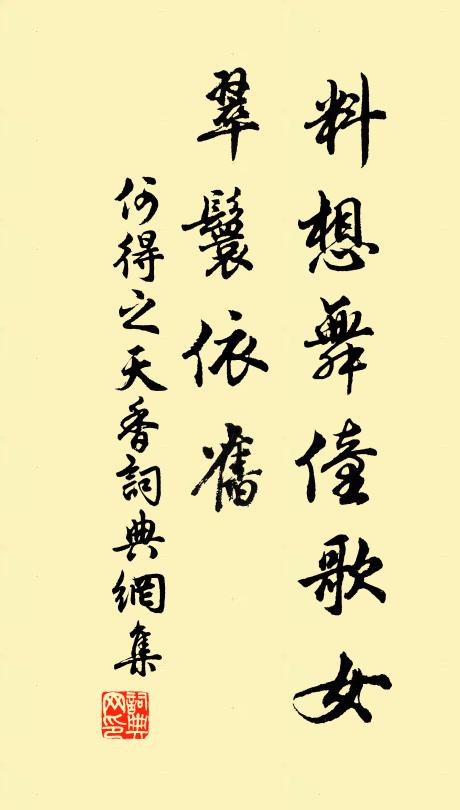 料想舞僮歌女
翠鬟依舊
何得之天香詞典網集
詞典網印